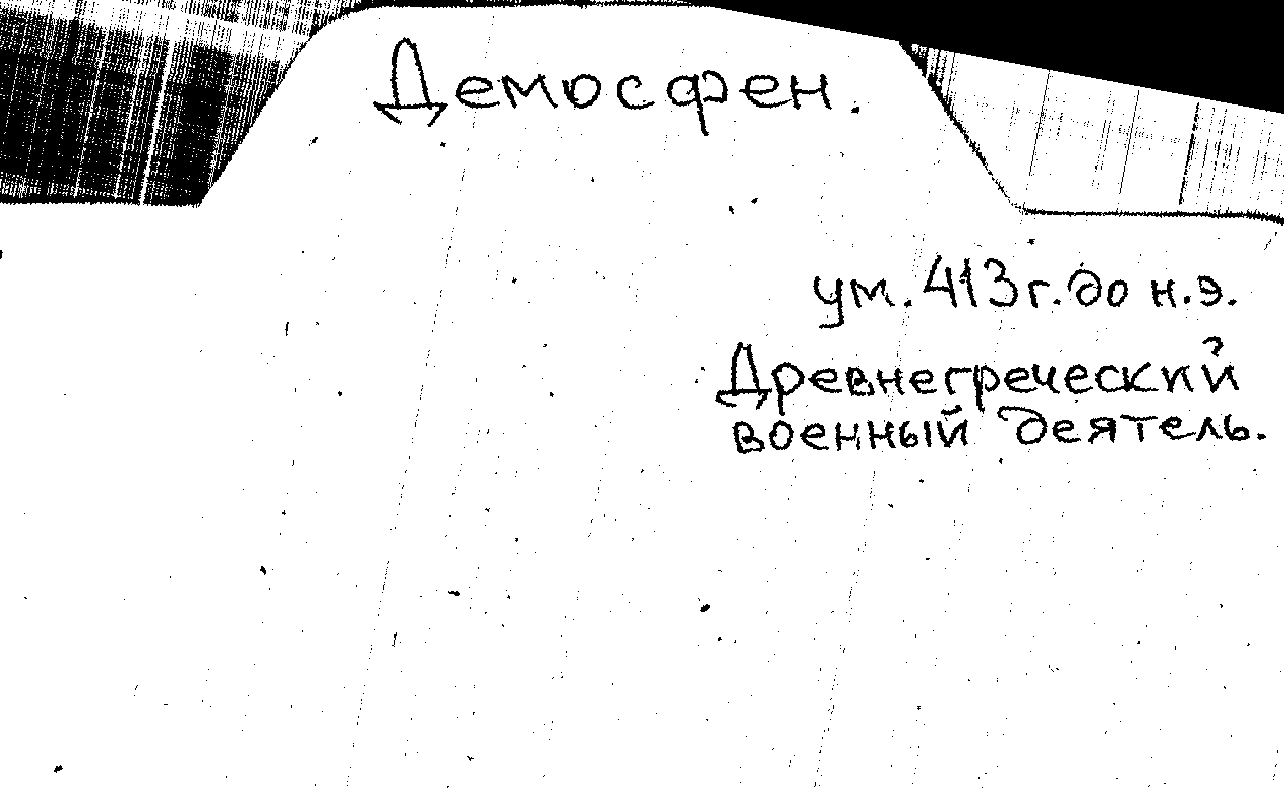 Демосфен.
ум. 413 г. до н.э.
Древнегреческий
военный деятель.